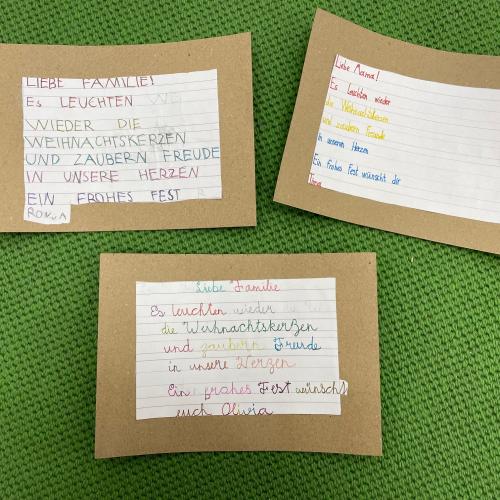 LIEBE FAMILIE!
ES LEUCHTEN
WIEDER DIE
WEIHNACHTSKERZEN
UND ZAUBERN FREUDE
IN UNSERE HERZEN
EIN FROHES FEST
Liebe Mama!
Es leuchten wieder
die Weihnachtskerzen
und zaubern Freude
in unseren Herzen
Ein frohes Fest wünscht dir
Liebe Familie
Es leuchten wieder
die Weihnachtskerzen
und zaubern Freude
in unsere Herzen
Ein frohes Fest wünscht
euch Olivia